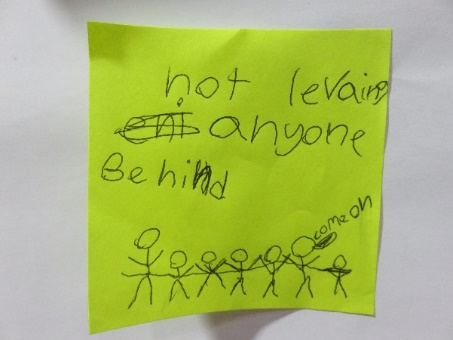 not levaing
eni anyone
Behind
come on